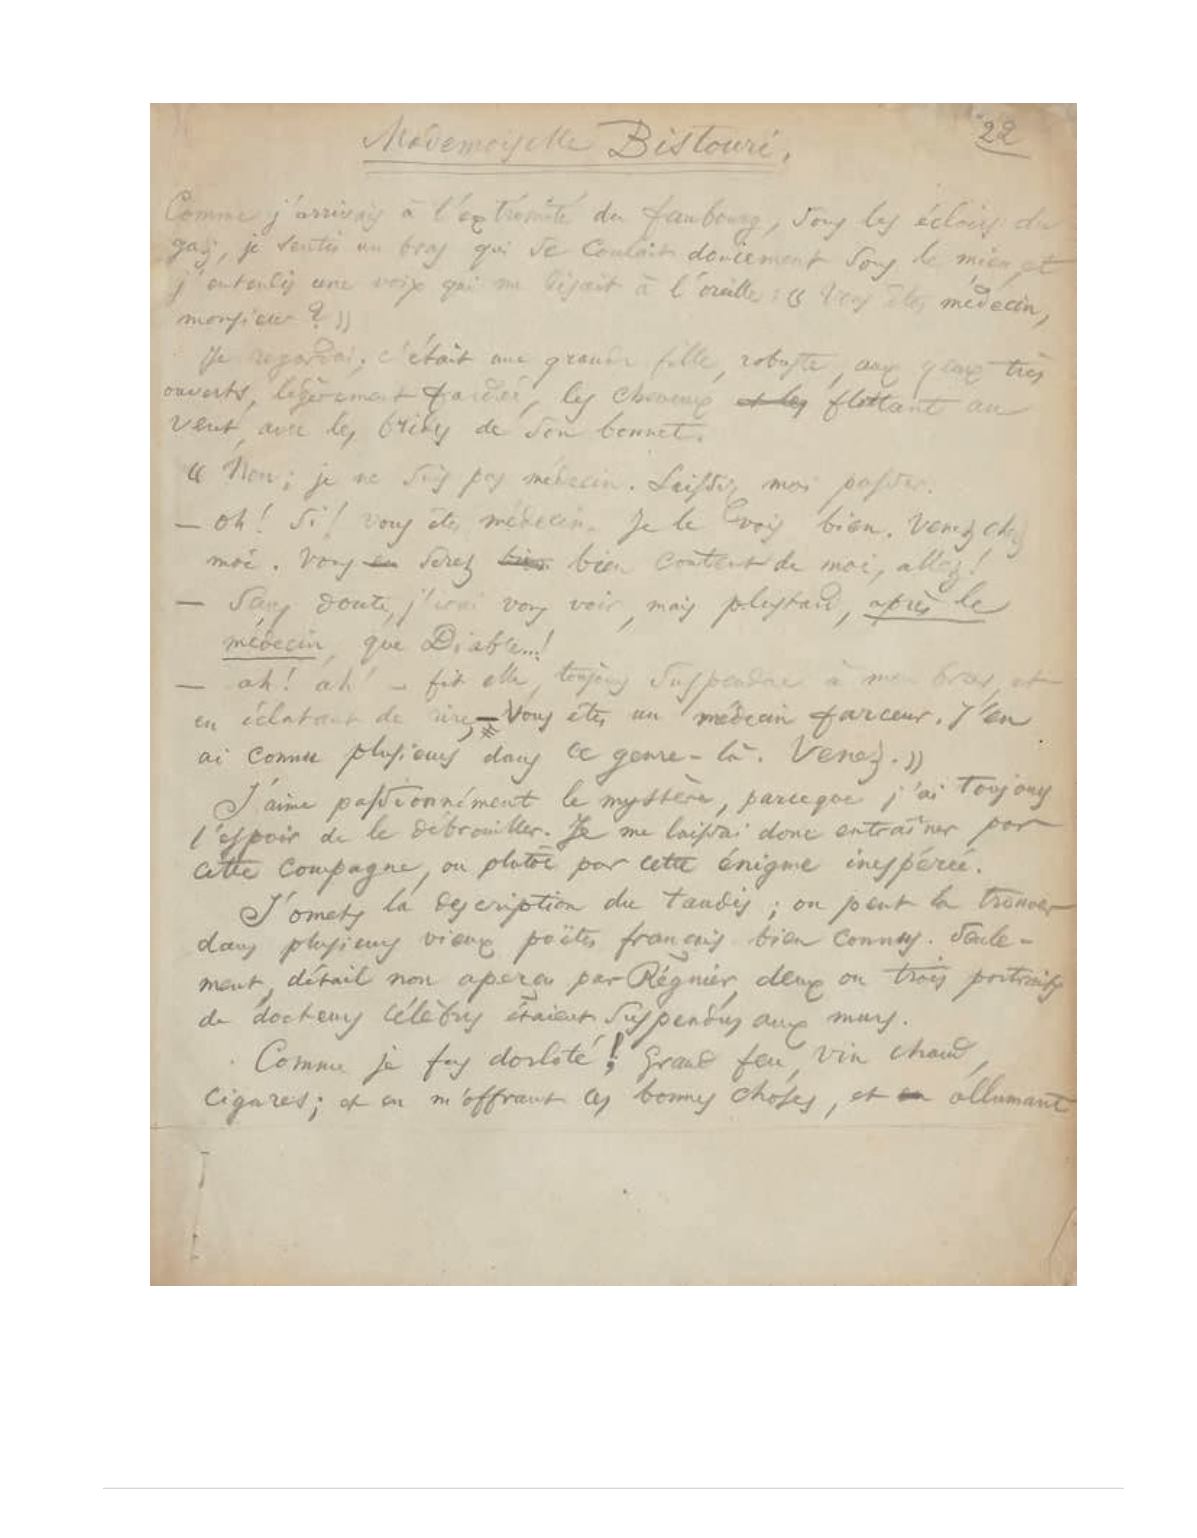 22
Mademoiselle Bistouri.
Comme j'arrivais à l'extrémité du faubourg, sous les éclairs du
gaz, je sentis un bras qui se coulait doucement sous le mien, et
j'entendis une voix qui me disait à l'oreille : « Vous êtes médecin,
monsieur ? »
Je regardai ; c'était une grande fille, robuste, aux yeux très
ouverts, légèrement fardée, les cheveux et les flottant au
vent, avec les brides de son bonnet.
« Non ; je ne suis pas médecin. Laissez moi passer.
— oh ! Si ! vous êtes médecin. Je le vois bien. Venez chez
moi. Vous en serez bien bien content de moi, allez !
— Sans doute, j'irai vous voir, mais plustard, après le
médecin, que Diable...!
— ah ! ah ! — fit elle, toujours suspendue à mon bras, et
en éclatant de rire, — Vous êtes un médecin farceur. J'en
ai connu plusieurs dans ce genre-là. Venez. »
J'aime passionnément le mystère, parceque j'ai toujours
l'espoir de le débrouiller. Je me laissai donc entraîner par
cette compagne, ou plutôt par cette énigme inespérée.
J'omets la description du taudis ; on peut la trouver
dans plusieurs vieux poëtes français bien connus. Seule-
ment, détail non aperçu par Régnier, deux ou trois portraits
de docteurs célèbres étaient suspendus aux murs.
Comme je fus dorloté ! Grand feu, vin chaud,
cigares ; et en m'offrant ces bonnes choses, et en allumant